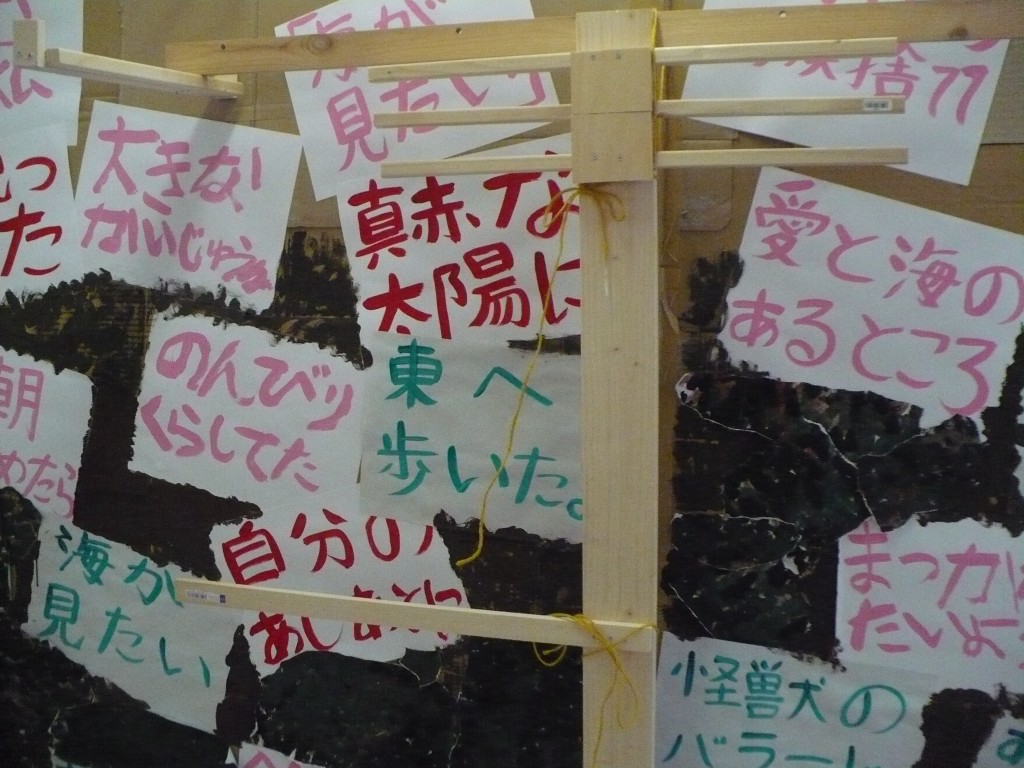 海が
見たい
捨
大きな
かいじゅうが
った
真赤な
太陽に
愛と海の
あるところ
のんびり
くらしてた
東へ
歩いた。
朝
めたら
自分の
あしあとに
海が
見たい
まっかな
たいよー
怪獣犬の
バラード